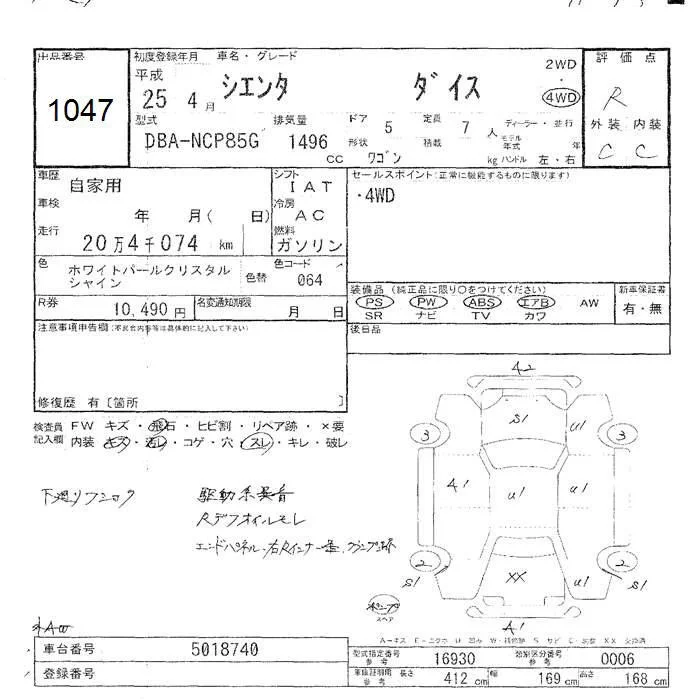 出品番号
1047
初度登録年月 車名・グレード
平成
25 4月 シエンタ ダイス
2WD
・
4WD
評価点
R
外装 内装
C C
型式 排気量 ドア 5 定員 7 人
ディーラー・並行
モデル年式 年
DBA-NCP85G 1496 cc
形状 ワゴン 積載 kg ハンドル 左・右
車歴 自家用
シフト IAT
車検 年 月( 日)
冷房 AC
走行 20万4千074 km
燃料 ガソリン
色 ホワイトパールクリスタル
シャイン
色替
色コード 064
R券 10,490円
名変通知期限 月 日
セールスポイント(正常に機能するものに限ります)
・4WD
装備品 (純正品に限り○をつけてください)
PS PW ABS エアB AW
SR ナビ TV カワ
新車保証書
有・無
後日品
注意事項申告欄(不具合内容等は具体的に記入して下さい)
修復歴 有〔箇所 〕
検査員
記入欄
FW キズ・飛石・ヒビ割・リペア跡・×要
内装 キズ・汚レ・コゲ・穴・スレ・キレ・破レ
下廻りフショク
駆動系異音
Rデフオイルモレ
42
S1
U1
3
3
A1
U1
U1
2
2
S1
XX
U1
S1
スペア
A1
車台番号 5018740
登録番号
型式指定番号
参考
16930
類別区分番号
参考
0006
車庫証明用
参考
長さ 412 cm 幅 169 cm 高さ 168 cm